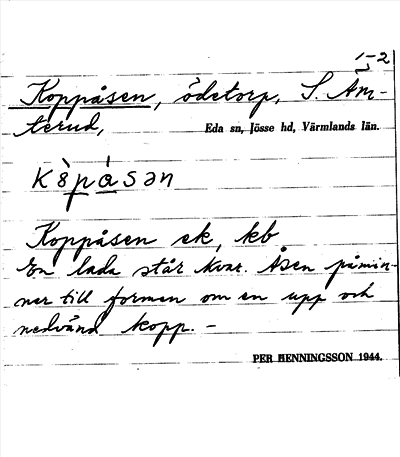 1-2
Koppåsen, ödetorp, S. Äm-
terud,
Eda sn, Jösse hd, Värmlands län.
Koppåsen ek, kb
En lada står kvar. Åsen påmin-
ner till formen om en upp och
nedvänd kopp. -
PER HENNINGSSON 1944.